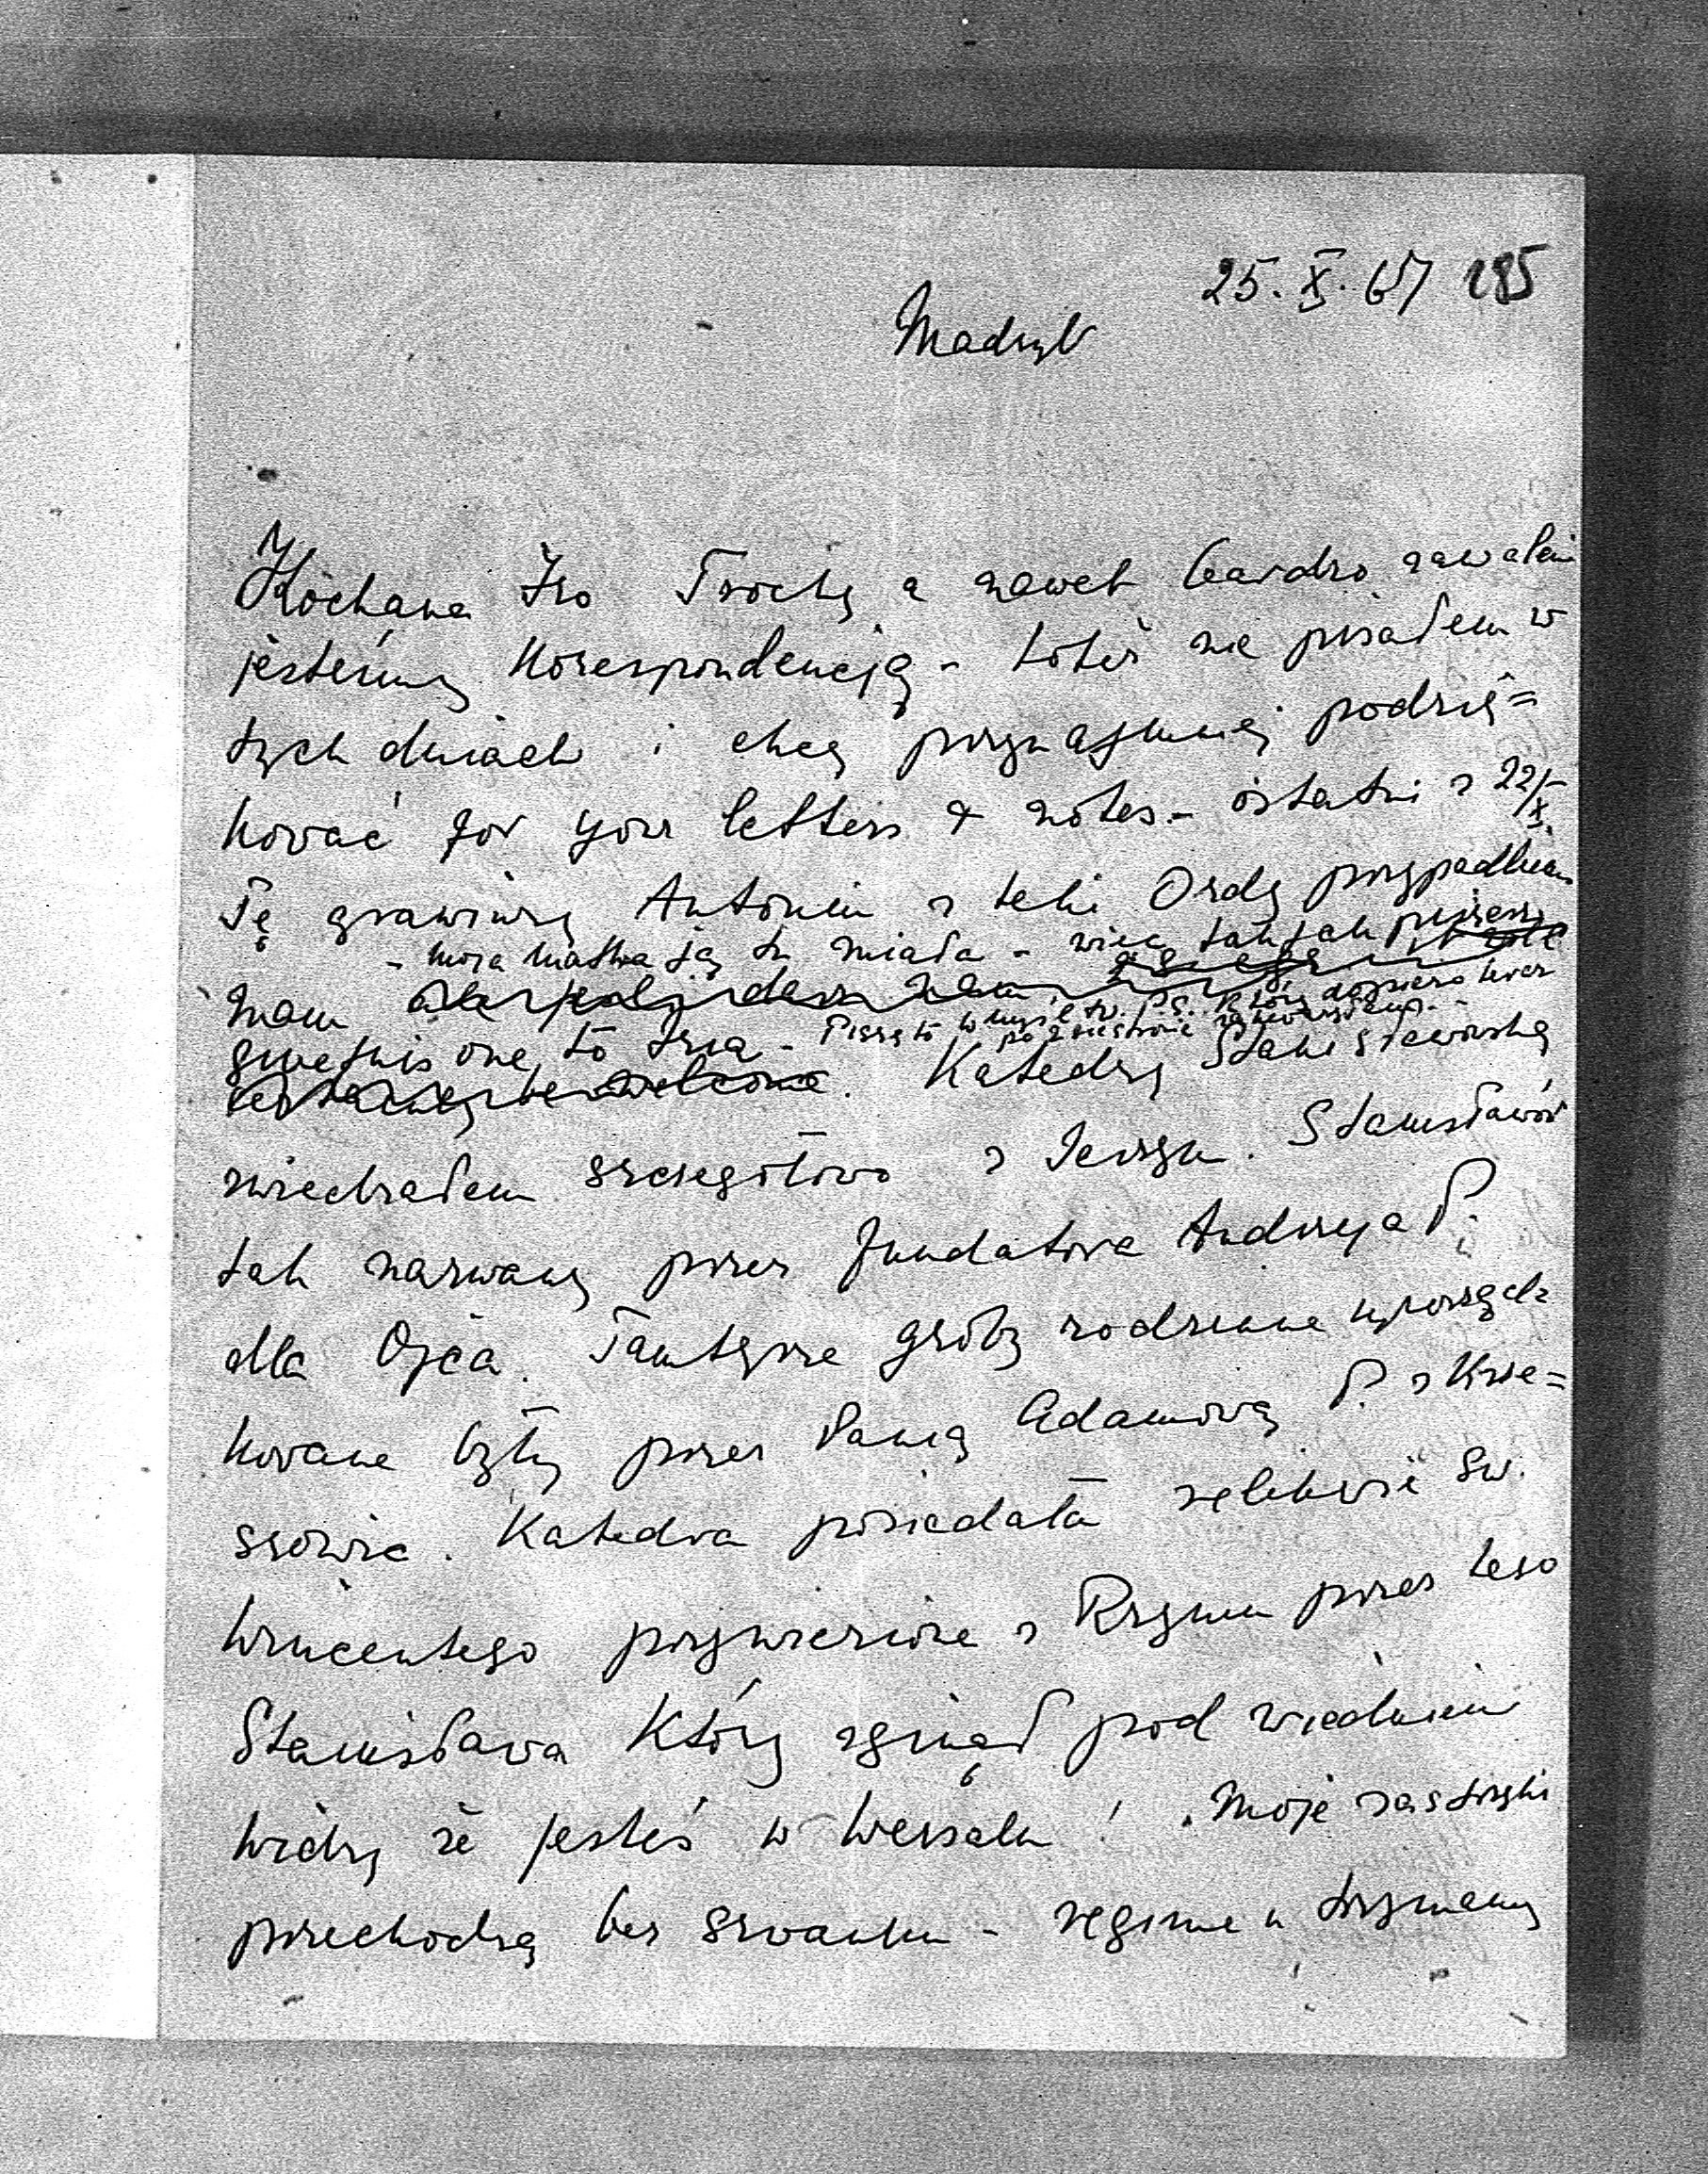 25. X. 67 285
Madryt
Kochana Izo Trochę a nawet bardzo zawaleni
jesteśmy Korespondencją - toteż nie pisałem w
tych dniach i chcę przynajmniej podzię=
kować for your letters & notes - ostatni z 22/X.
Tę grawiurę Antonin z teki Ordy przypadkiem
- moja matka ją tu miała - więc tak jak piszesz
mam
give this one to Iza - Piszę to w myśl tw. P.S. który dopiero teraz
po 2 stronie
Katedrę Stanisławowską
zwiedzałem szczegółowo z Jerzym. Stanisławów
tak nazwany przez fundatora Andrzeja P.
dla Ojca. Tamtejsze groby rodzinne uporząd=
kowane były przez Panią Adamową P. z Krze=
szowic. Katedra posiadała relikwie Św.
Wincentego przywiezione z Rzymu przez tego
Stanisława Który zginął pod Wiedniem
Widzę że jesteś w Wersalu! Moje zastrzyki
przechodzą bez szwanku - regime'u trzymamy